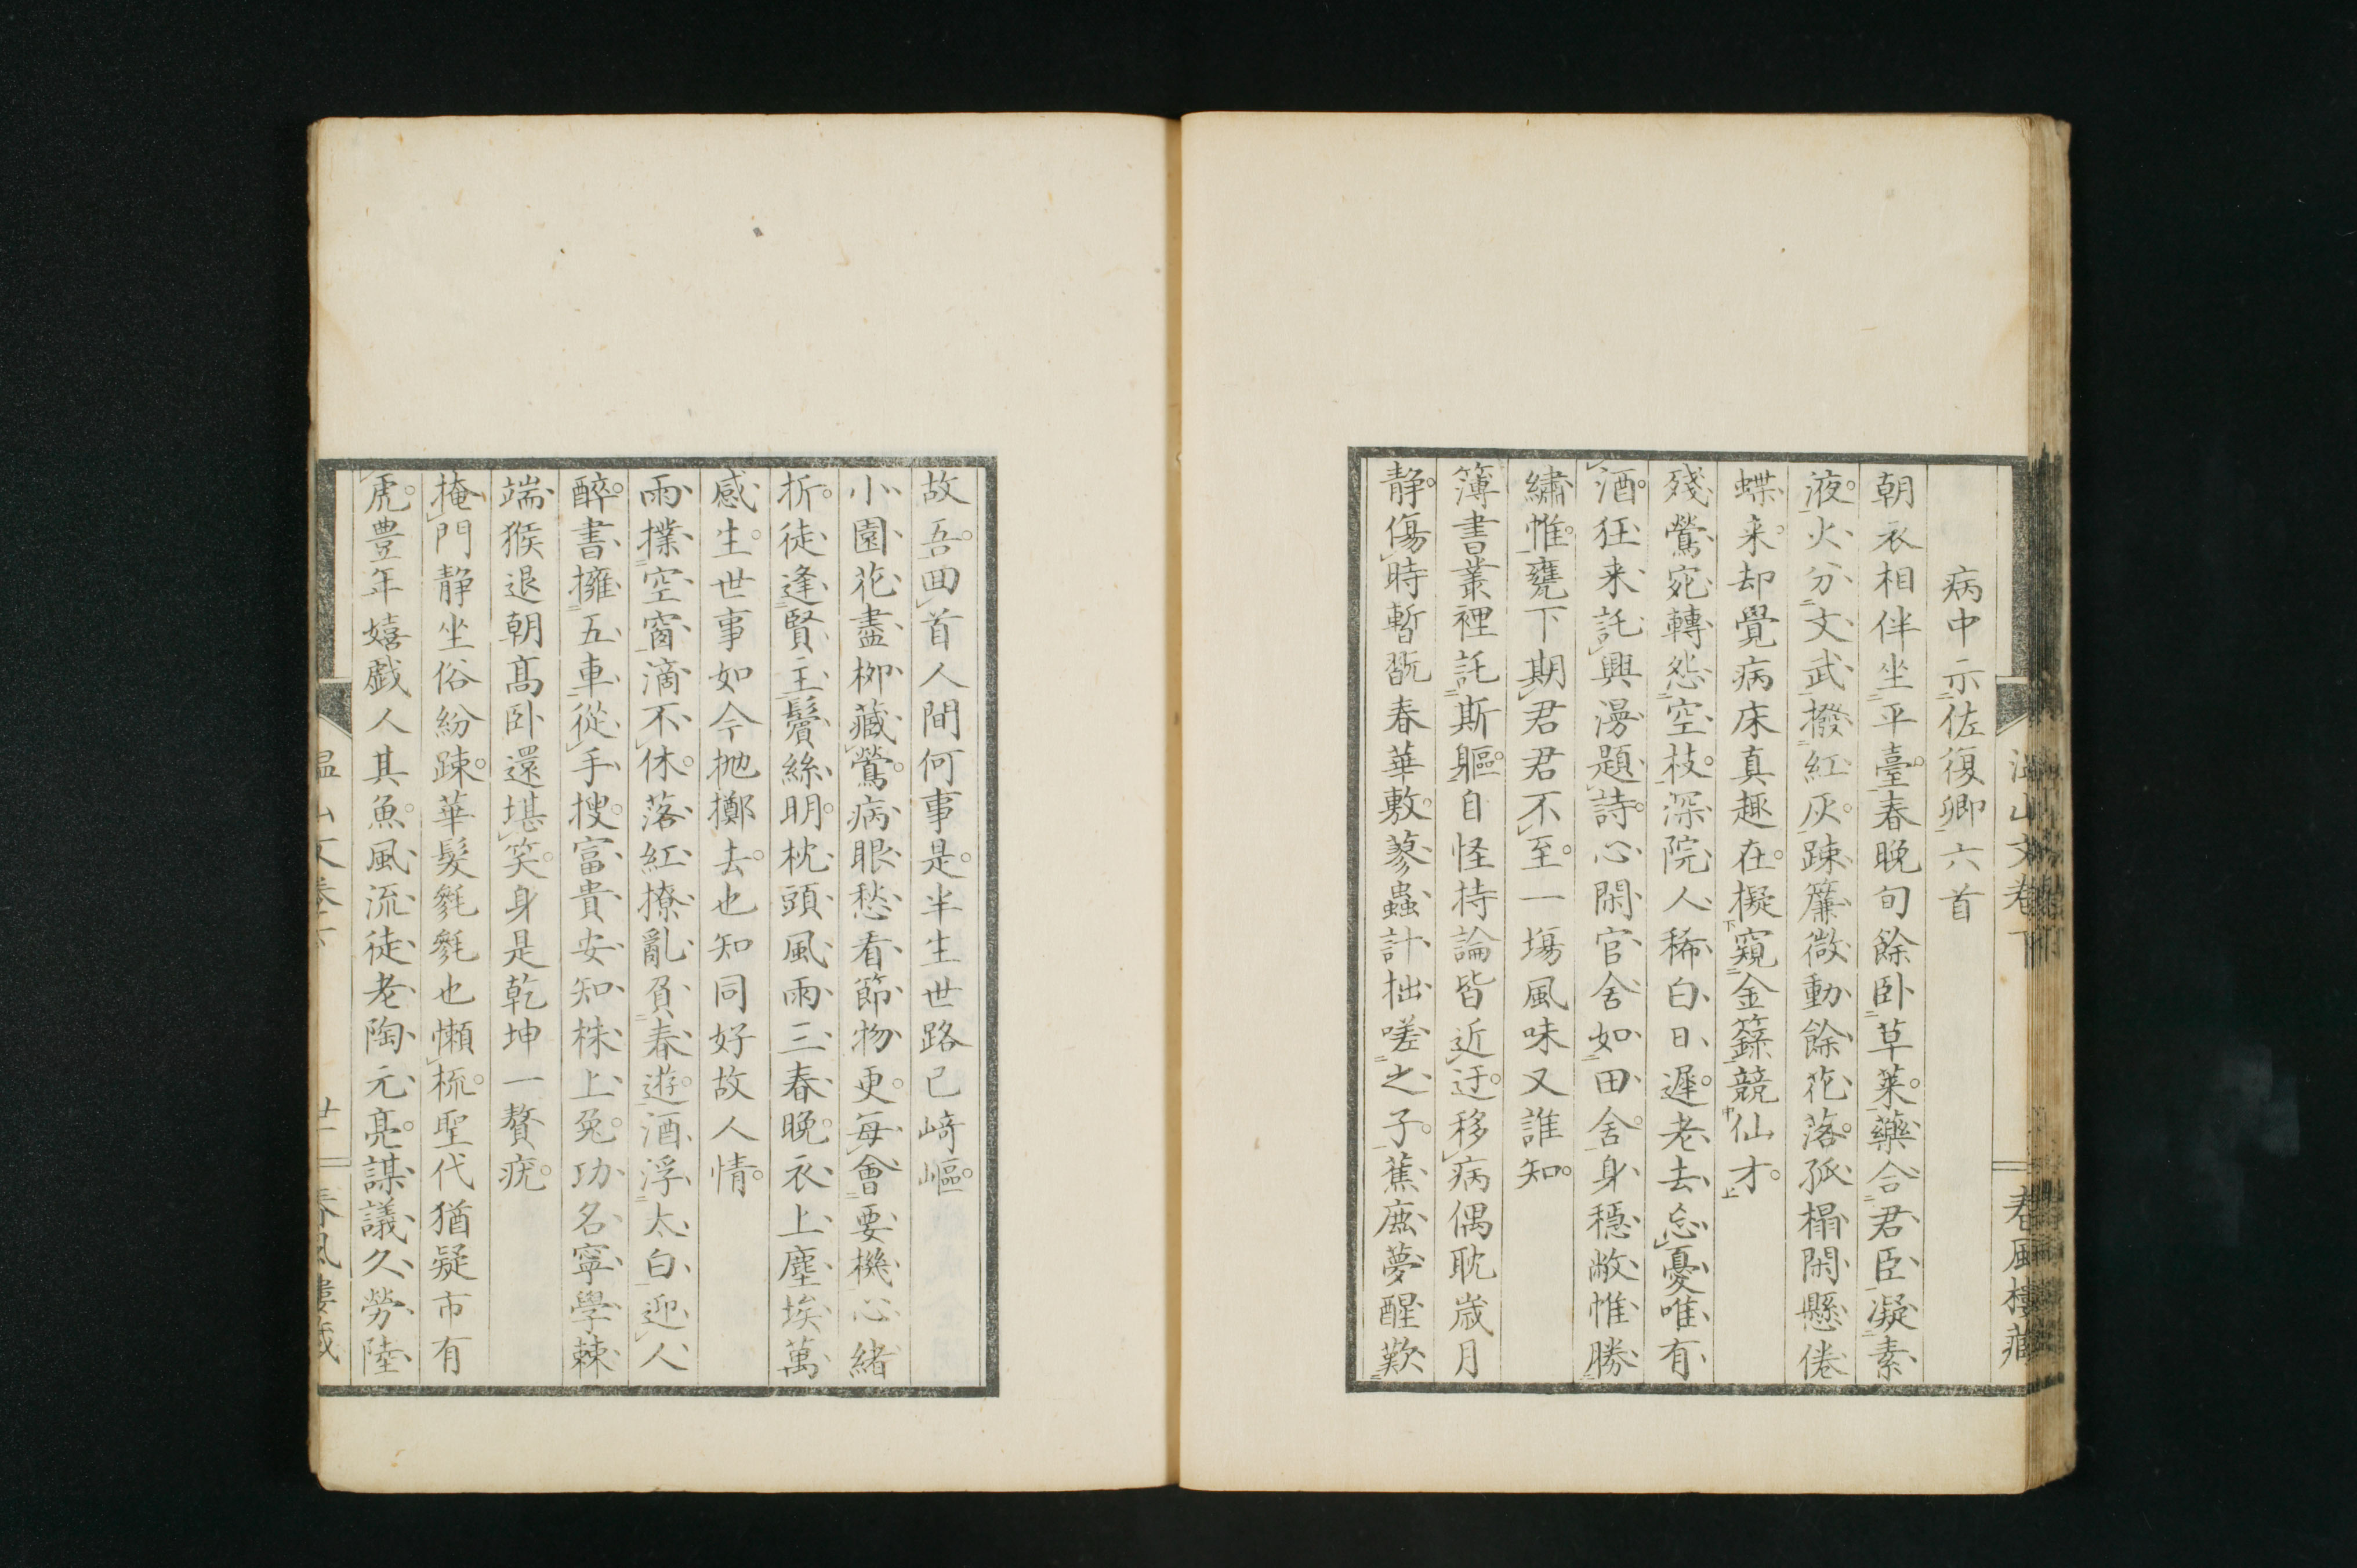 病中示佐復卿六首
朝衣相伴坐平臺。春晚旬餘臥草萊。藥合君臣凝素
液。火分文武撥紅灰。疎簾微動餘花落。孤榻閑懸倦
蝶来。却覺病床真趣在。擬窺金籙競仙才。
殘鶯宛轉怨空枝。深院人稀白日遲。老去忘憂唯有
酒。狂来託興漫題詩。心閑官舍如田舍。身穩敝惟勝
繡惟。甕下期君君不至。一塲風味又誰知。
簿書叢裡託斯軀。自怪持論皆近迂。移病偶耽歲月
静。傷時暫翫春華敷。蓼蟲計拙嗟之子。蕉鹿夢醒歎
故吾。回首人間何事是。半生世路已﨑嶇。
小園花盡柳藏鶯。病眼愁看節物更。每會要機心緒
折。徒逢賢主鬢絲明。枕頭風雨三春晚。衣上塵埃萬
感生。世事如今抛擲去。也知同好故人情。
雨撲空窗滴不休。落紅撩亂負春遊。酒浮太白迎人
醉。書擁五車從手搜。富貴安知株上兔。功名寧學棘
端猴。退朝髙臥還堪笑。身是乾坤一贅疣。
掩門静坐俗紛疎。華髮毿毿也懶梳。聖代猶疑市有
虎。豊年嬉戯人其魚。風流徒老陶元亮。謀議久勞陸